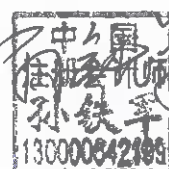 中国
注册会计师
孙铁军
130000042199